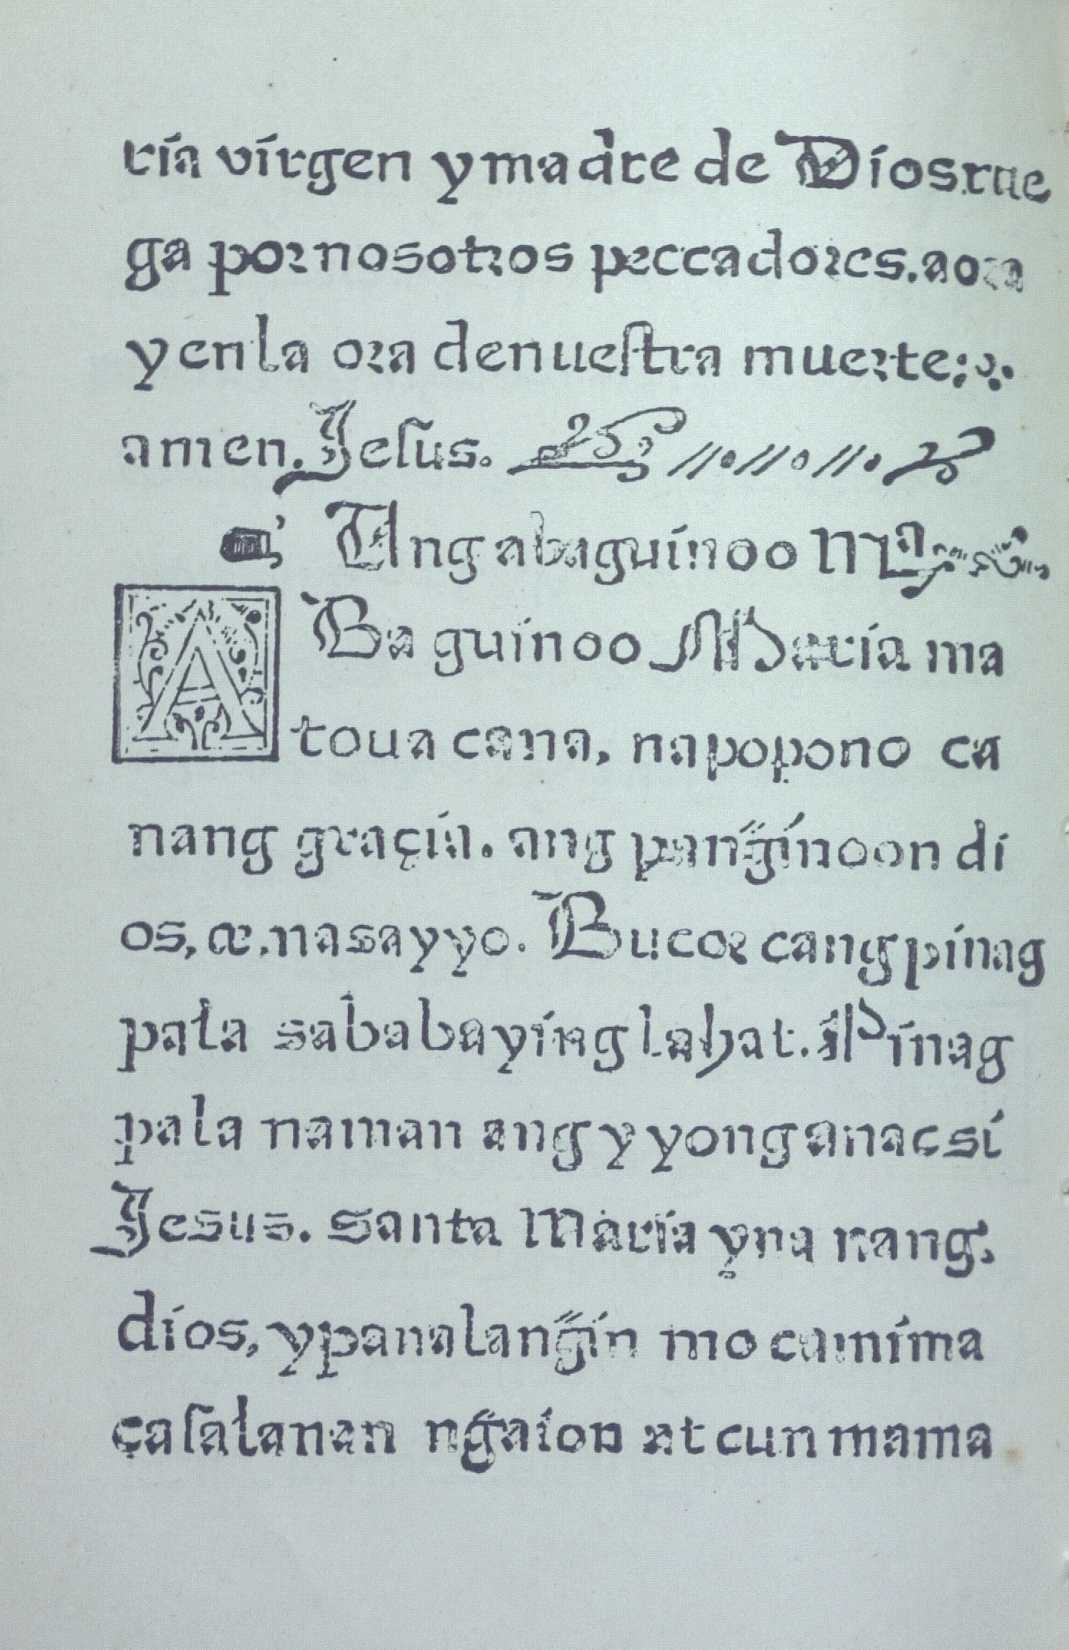 ria virgen y madre de Dios rue
ga por nosotros peccadores. aora
y en la ora de nuestra muerte:
amen. Jesus.
Ang aba guinoo Ma
ABa guinoo Maria ma
toua cana, napopono ca
nang graçia. ang panğinoon di
os, æ, nasayyo. Bucor cang pinag
pala sa babaying lahat. Pinag
pala naman ang yyong anac si
Jesus. santa Maria yna nang,
dios, ypanalanğin mo camima
çasalanan nğaion at cun mama